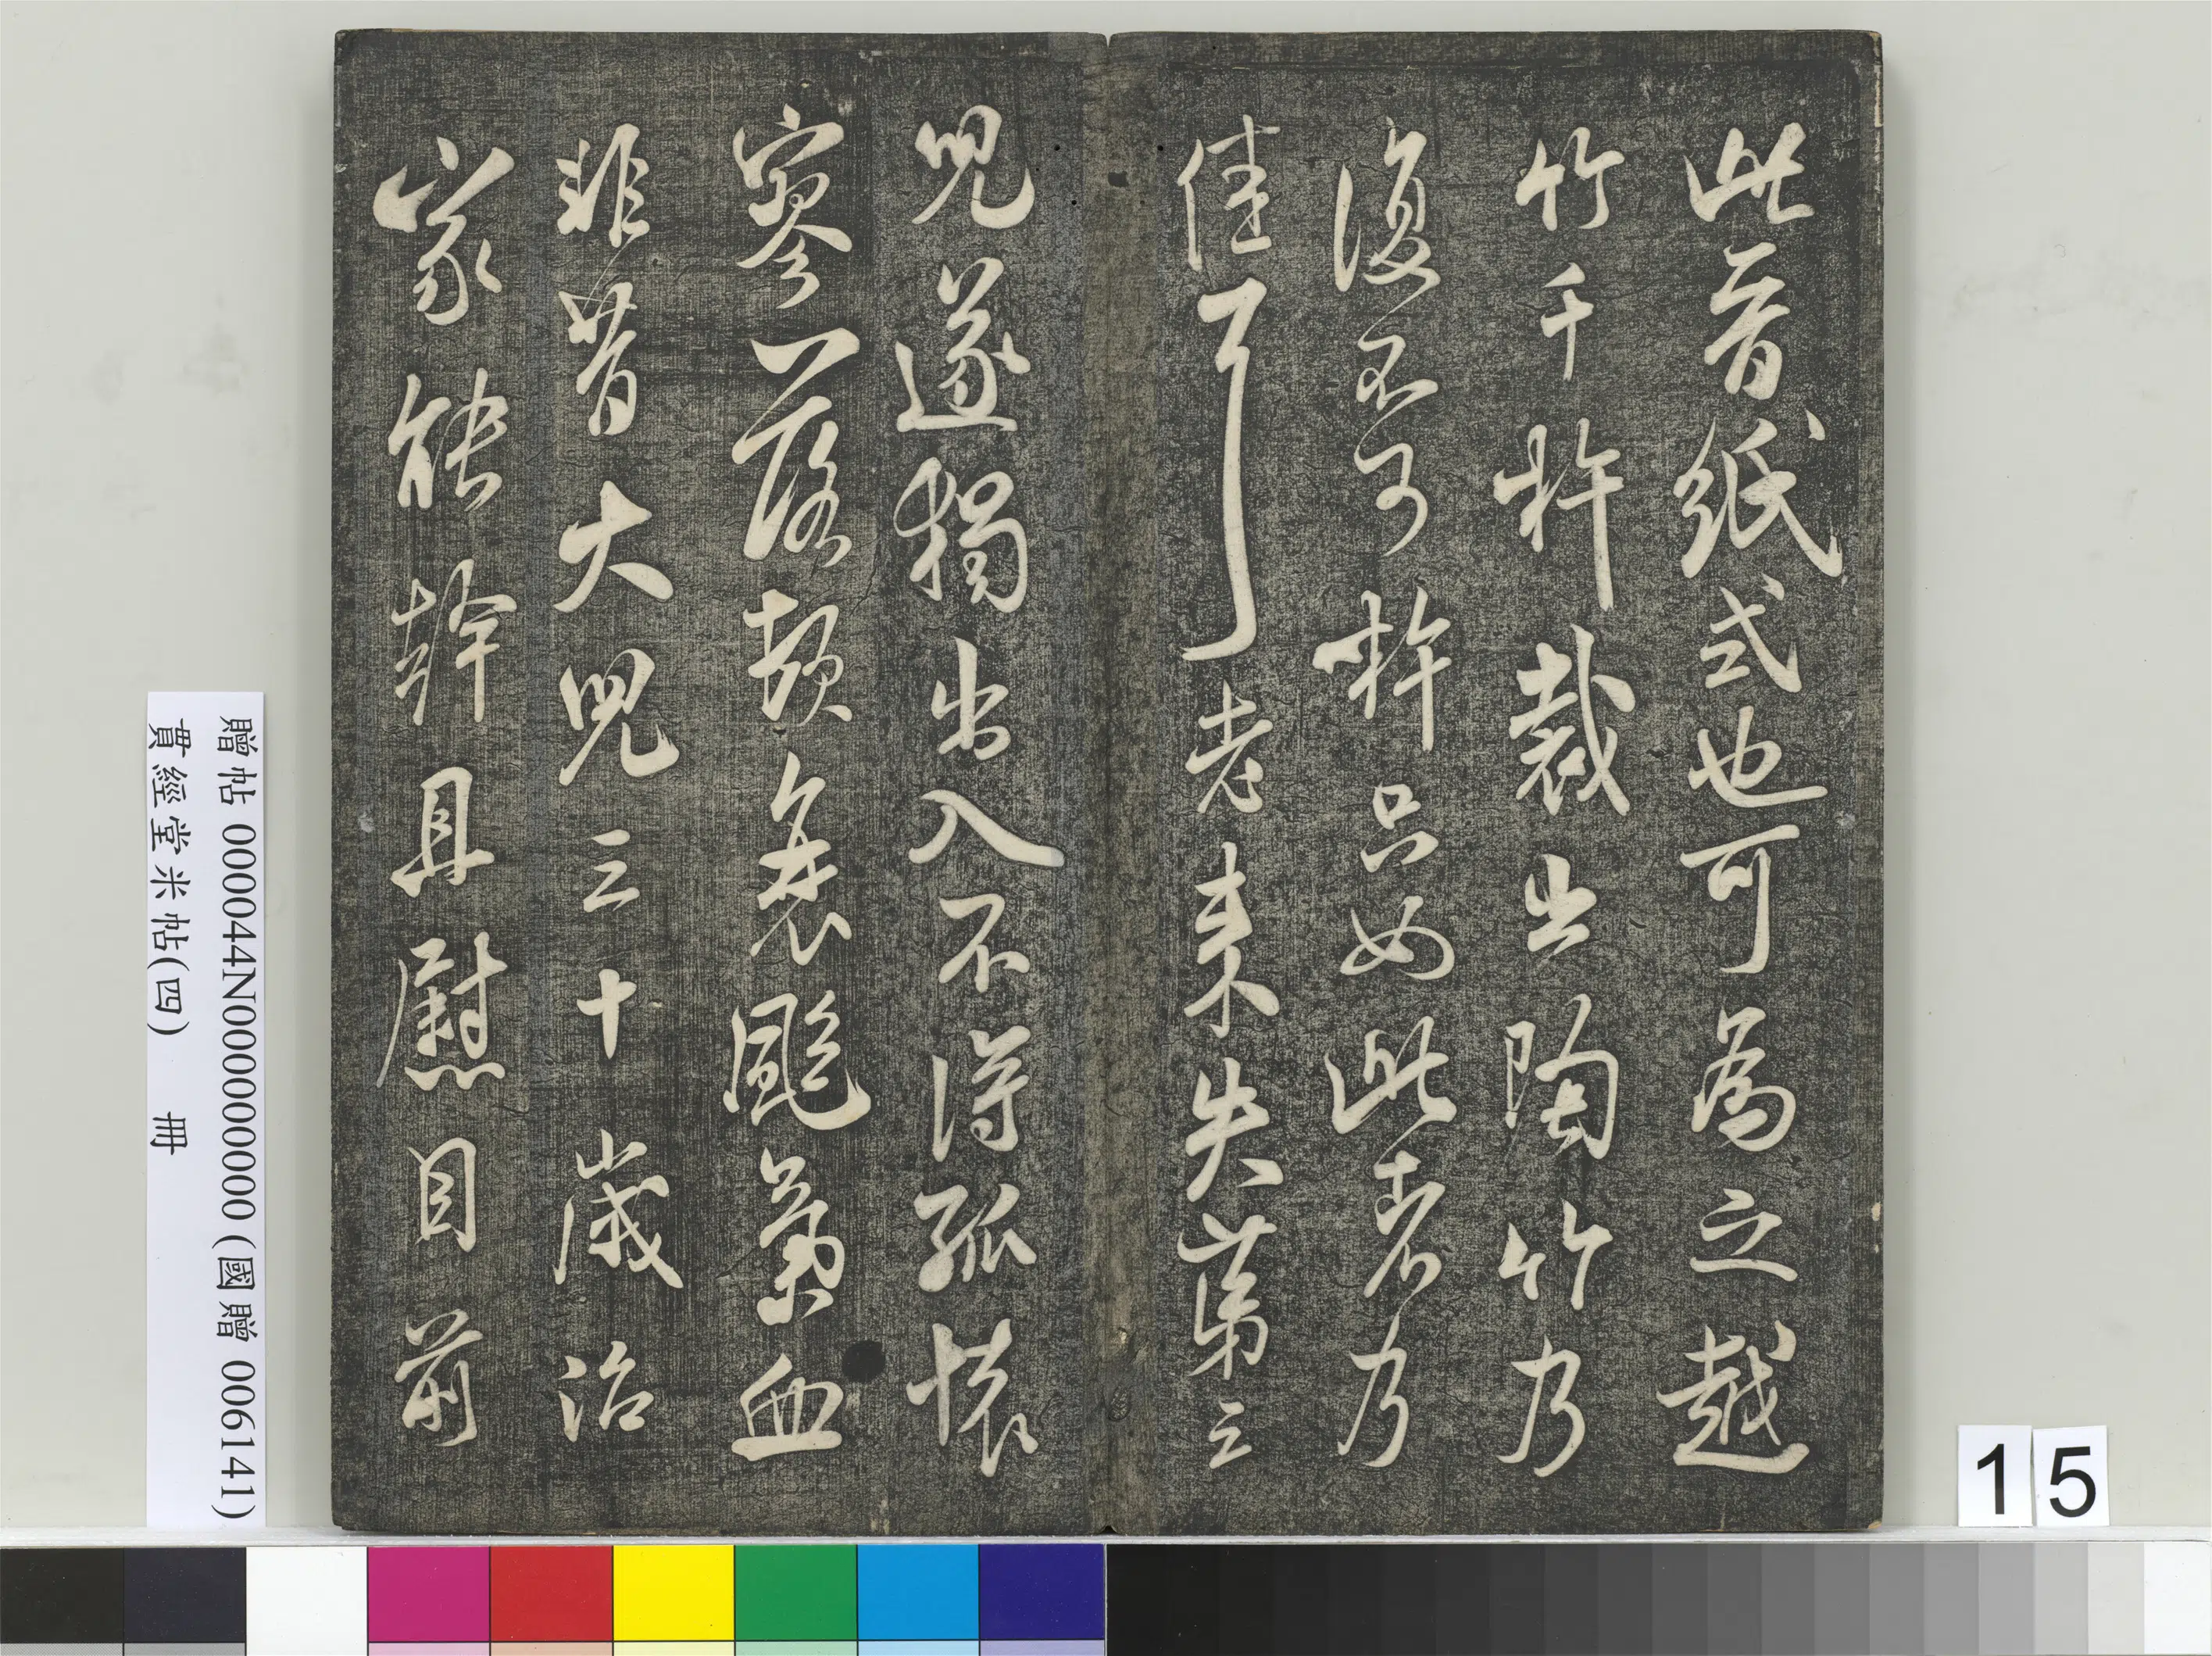 此晉紙式也可為之越
竹千杵裁出陶竹乃
復不可杵只如此者乃
佳耳老來失第三
兒遂獨出入不得孤懷
寥落頓衰颩氣血
非昔大兒三十歲治
家能幹且慰目前
贈帖 000044N000000000 (國贈 006141)
貫經堂米帖(四) 冊
15